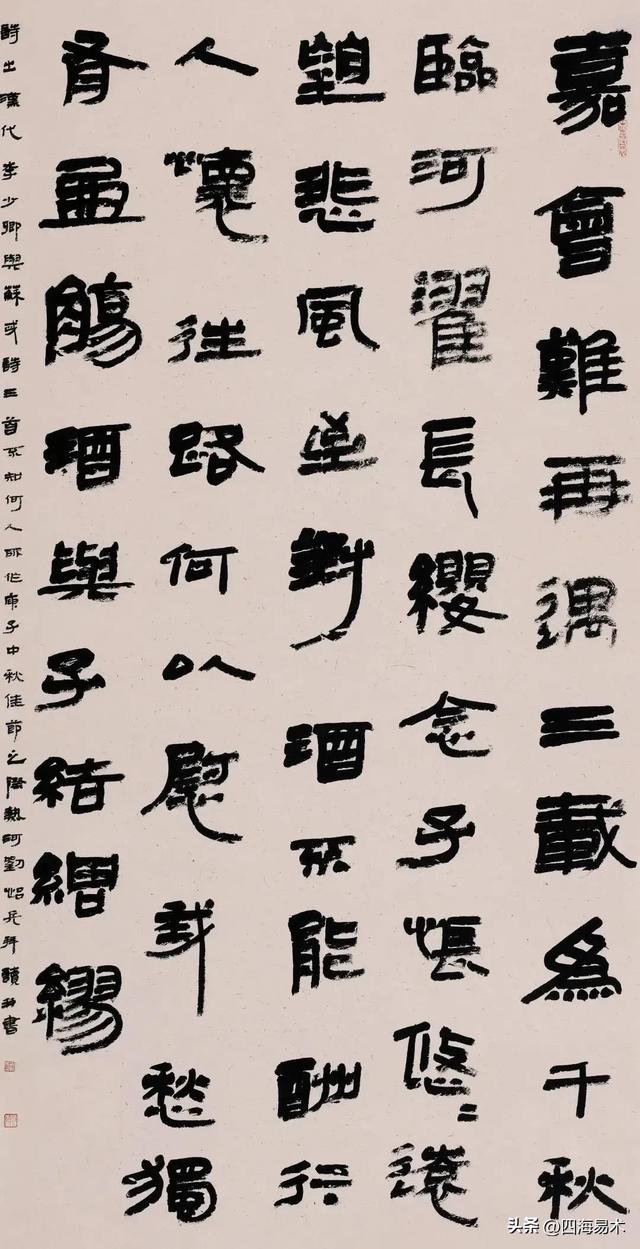 嘉會難再遇三載為千秋
臨河濯長纓念子悵悠〻遠
望悲風至對酒不能酬行
人懷往路何以慰我愁獨
有盈觴酒與子結綢繆
詩出漢代李少卿與蘇武詩三首不知何人所作庚子中秋佳節之際熱河劉拜讀并書
头条 @四海易木